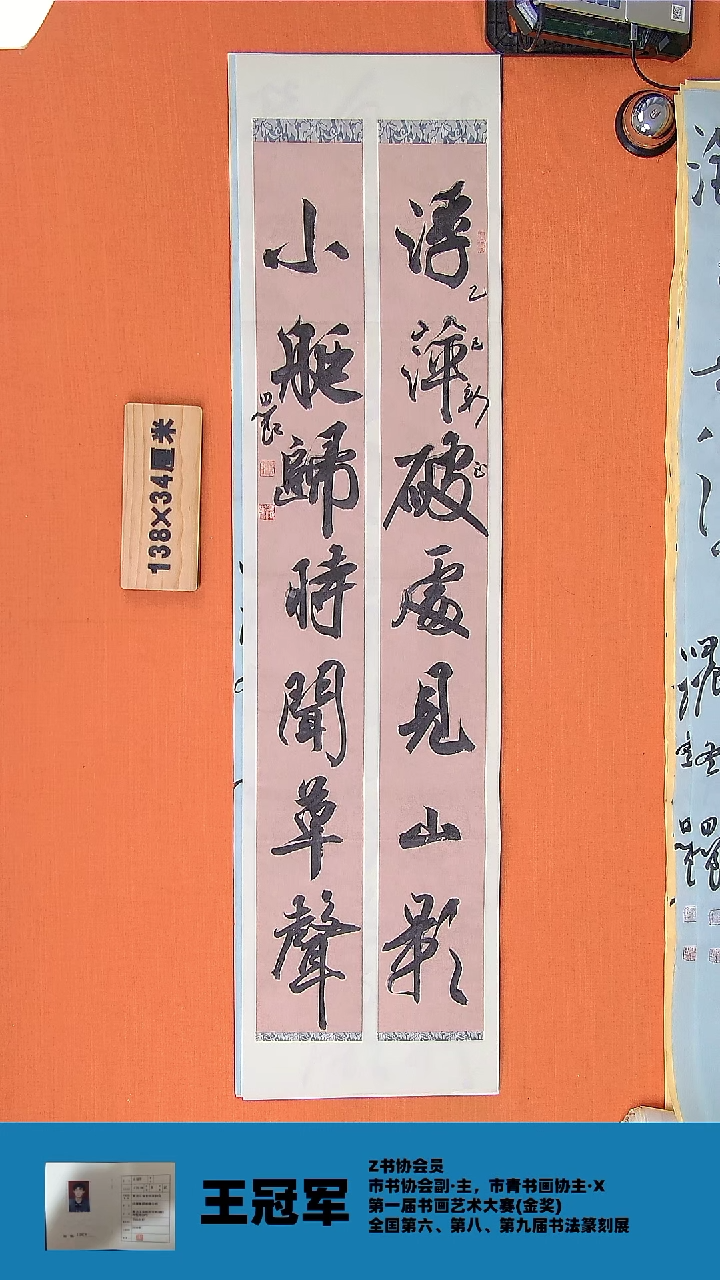 浮萍破處見山影
小艇歸時聞草聲
乙巳
138×34厘米
王冠军
Z书协会员
市书协会副·主，市青书画协主·X
第一届书画艺术大赛(金奖)
全国第六、第八、第九届书法篆刻展